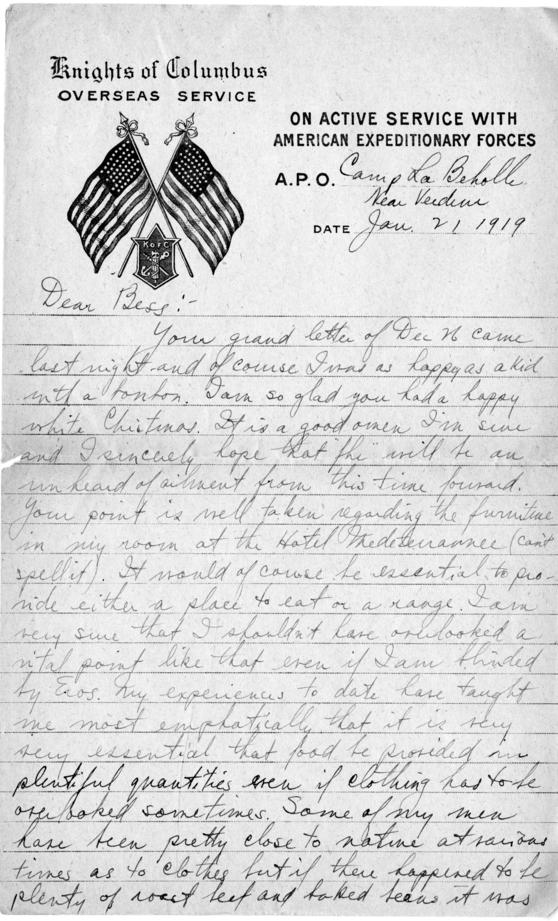 Knights of Columbus
OVERSEAS SERVICE
ON ACTIVE SERVICE WITH
AMERICAN EXPEDITIONARY FORCES
A.P.O. Camp La Beholle
Near Verdun
DATE Jan. 21 1919
K of C
Dear Bess:-
Your grand letter of Dec 26 came
last night and of course I was as happy as a kid
with a bonbon. I am so glad you had a happy
white Christmas. It is a good omen I'm sure
and I sincerely hope that flu will be an
unheard of ailment from this time forward.
Your point is well taken regarding the furniture
in my room at the Hotel Mediterrannee (can't
spell it). It would of course be essential to pro-
vide either a place to eat or a range. I am
very sure that I shouldn't have overlooked a
vital point like that even if I am blinded
by Eros. My experiences to date have taught
me most emphatically that it is very
very essential that food be provided in
plentiful quantities even if clothing has to be
overlooked sometimes. Some of my men
have been pretty close to nature at various
times as to clothes but if there happened to be
plenty of roast beef and baked beans it was